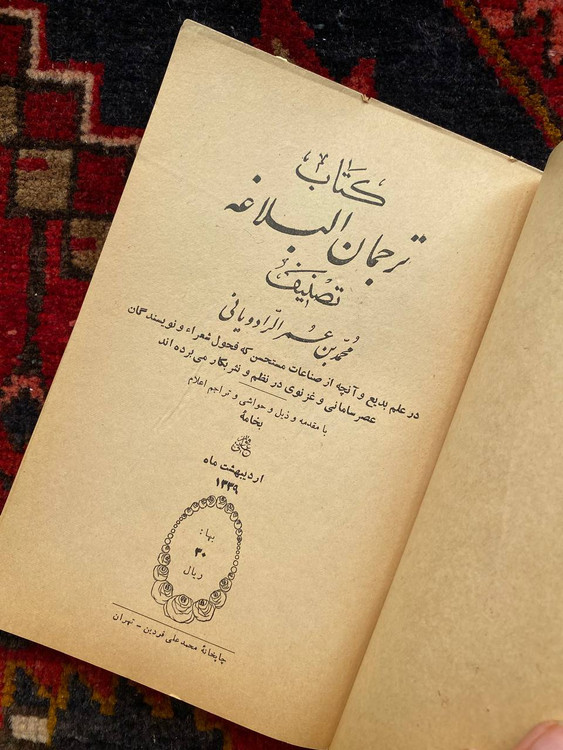 کتاب
ترجمان البلاغه
تصنیف
محمد بن عمر الرادویانی
در علم بدیع و آنچه از صناعات مستحسن که فحول شعراء و نویسندگان
عصر سامانی و غزنوی در نظم و نثر بکار می برده اند
با مقدمه و ذیل و حواشی و تراجم اعلام
بخامهٔ
اردیبهشت ماه
۱۳۳۹
بها:
۳۰
ریال
چاپخانهٔ محمد علی فردین - تهران